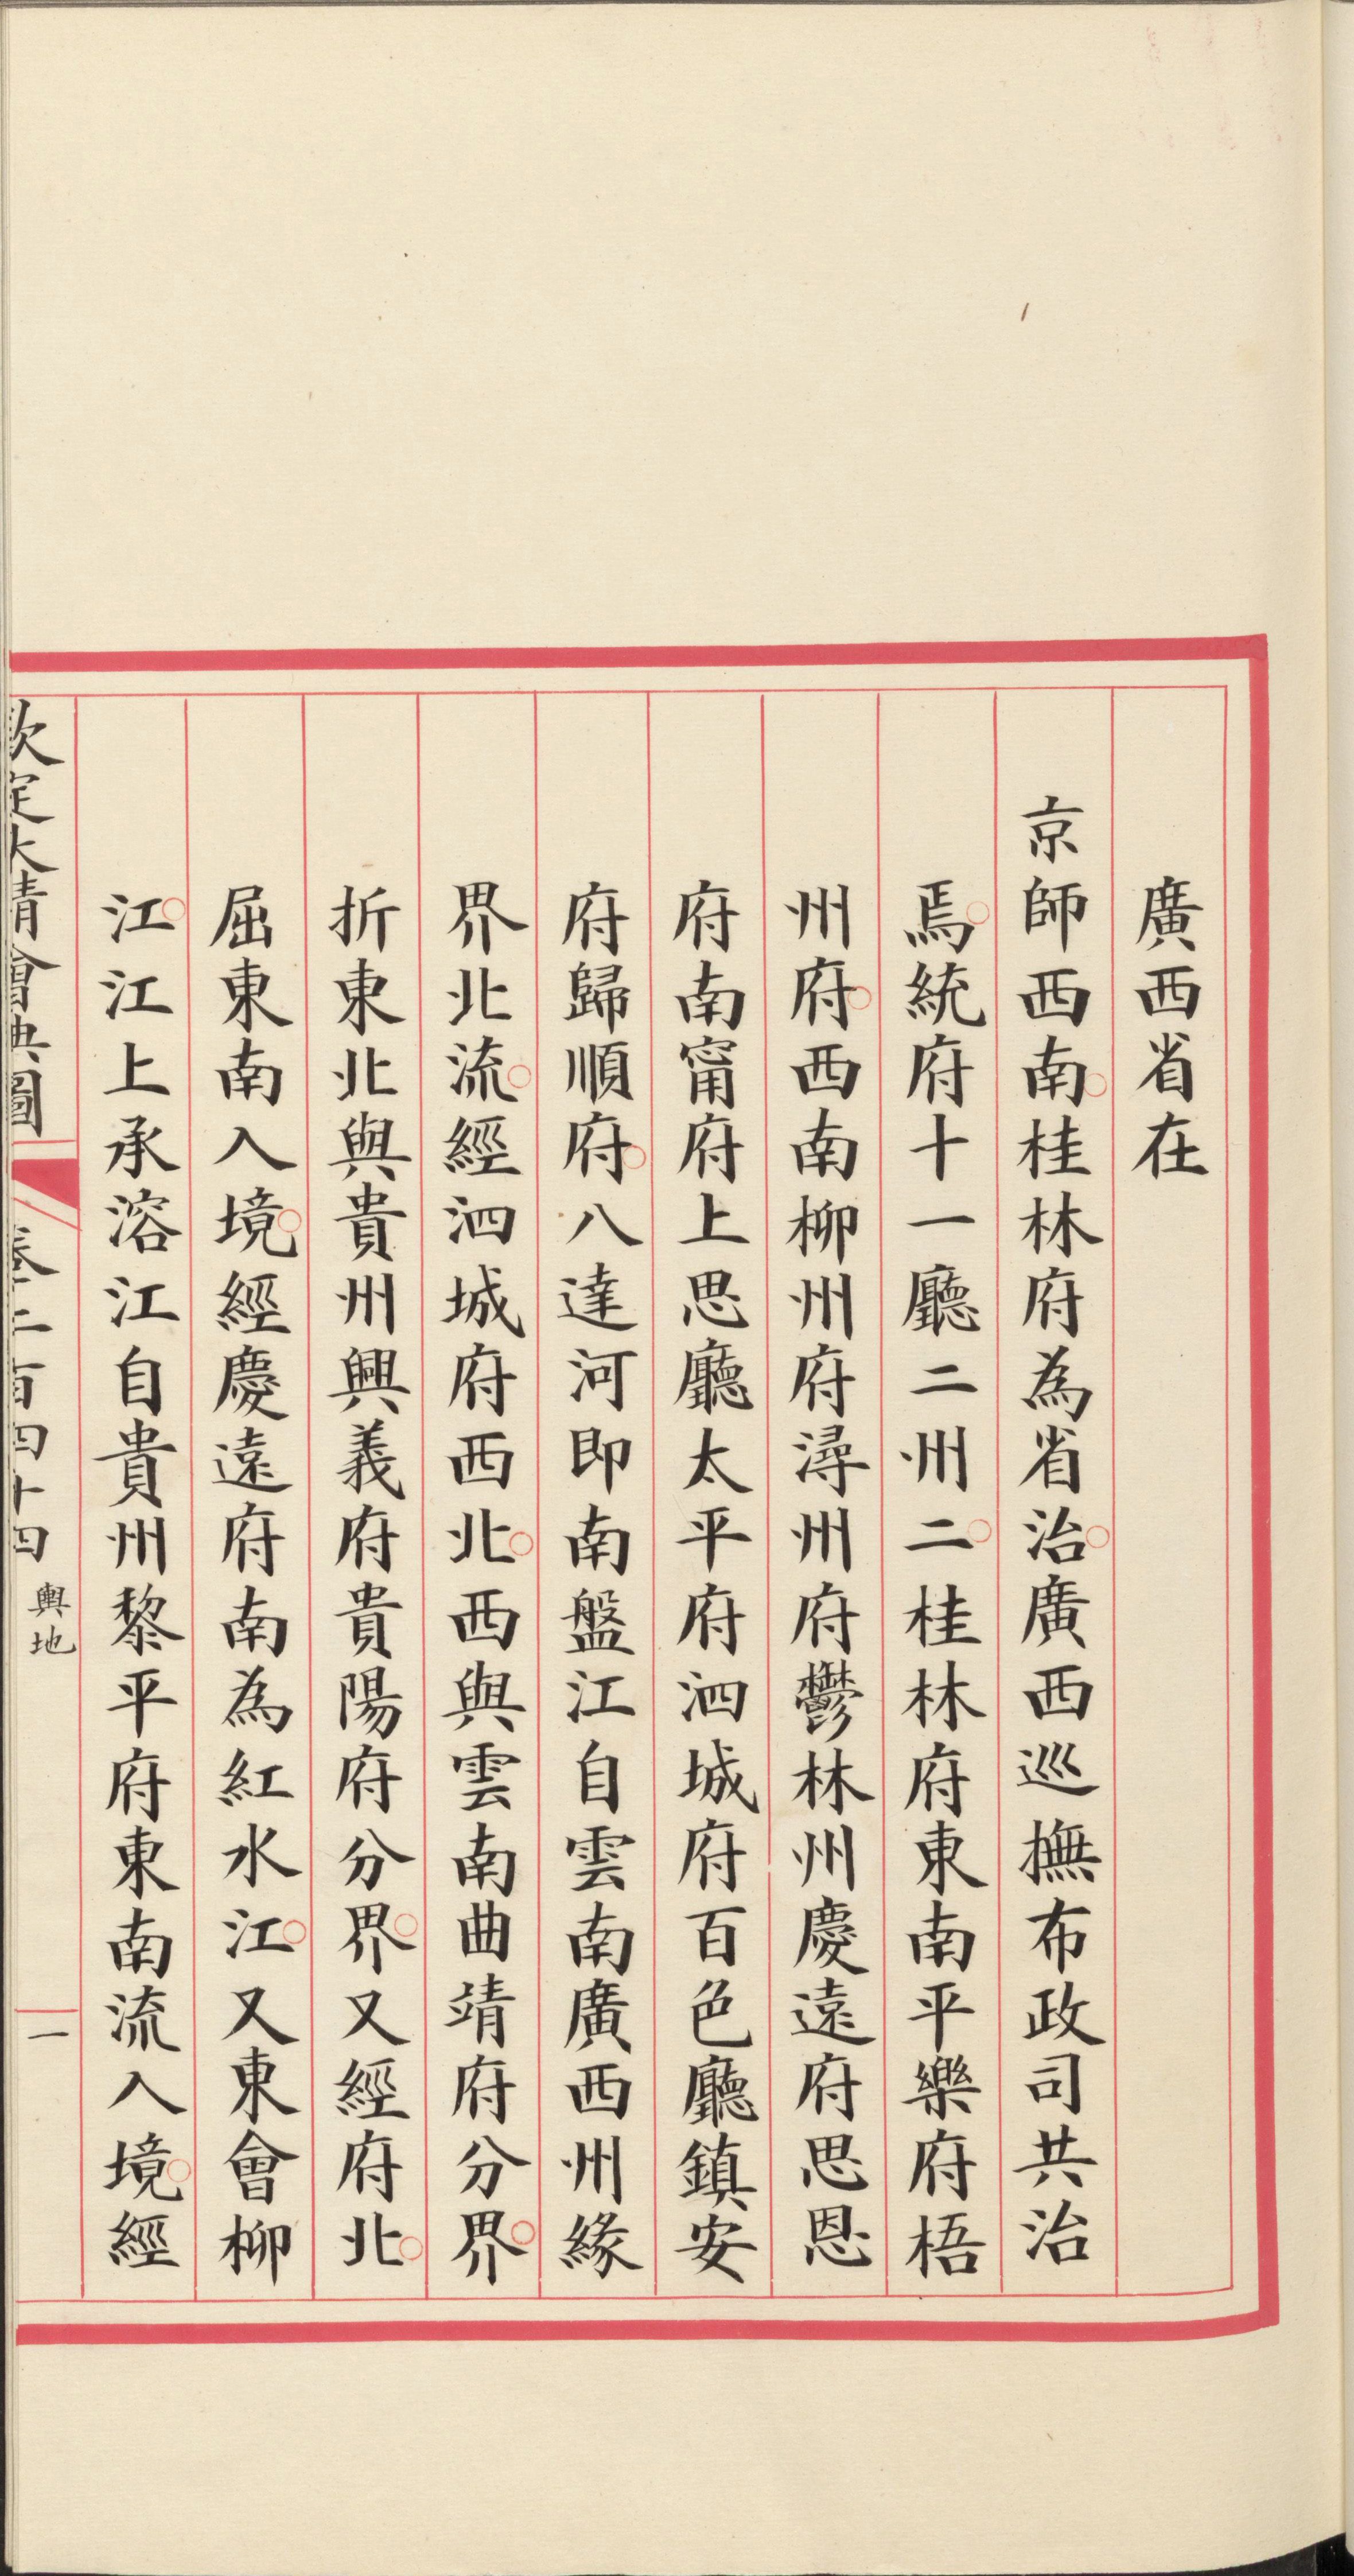 廣西省在
京師西南桂林府為省治廣西巡撫布政司共治
焉統府十一廳二州二桂林府東南平樂府梧
州府西南柳州府潯州府鬱林州慶遠府思恩
府南甯府上思廳太平府泗城府百色廳鎮安
府歸順府八達河即南盤江自雲南廣西州緣
界北流經泗城府西北西與雲南曲靖府分界
折東北與貴州興義府貴陽府分界又經府北
屈東南入境經慶遠府南為紅水江又東會柳
江江上承溶江自貴州黎平府東南流入境經
欽定大清會典圖
卷二百四十四
輿地
一